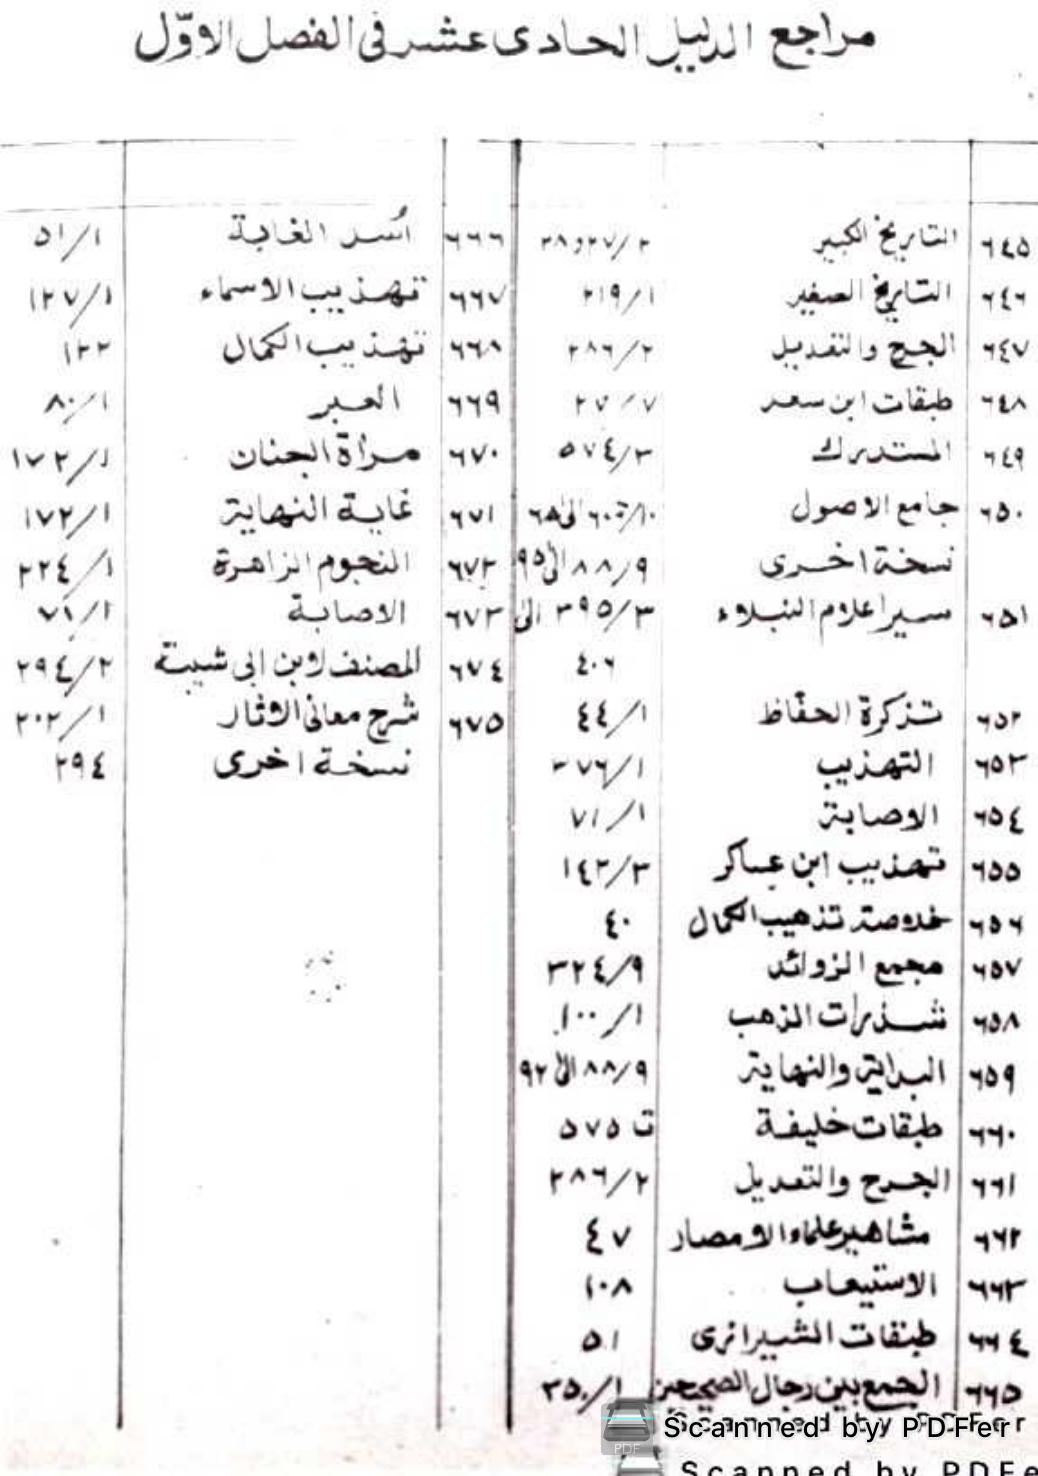 مراجع الدليل الحادى عشر فى الفصل الاوّل
٦٤٥ التاريخ الكبير ٢/٢٧و٢٨
٦٤٦ التاريخ الصغير ١/٢١٩
٦٤٧ الجرح والتعديل ٢/٢٨٦
٦٤٨ طبقات ابن سعد ٧/٢٧
٦٤٩ المستدرك ٣/٥٧٤
٦٥٠ جامع الاصول
نسخة اخرى ٩/٨٨ الى ٩٥
٦٥١ سير اعلام النبلاء ٣/٣٩٥ الى
٤٠٦
٦٥٢ تذكرة الحفّاظ ١/٤٤
٦٥٣ التهذيب ١/٣٧٦
٦٥٤ الاصابة ١/٧١
٦٥٥ تهذيب ابن عساكر ٣/١٤٢
٦٥٦ خلاصة تذهيب الكمال ٤٠
٦٥٧ مجمع الزوائد ٩/٣٢٤
٦٥٨ شذرات الذهب ١/١٠٠
٦٥٩ البداية والنهاية ٩/٨٨ الى ٩٢
٦٦٠ طبقات خليفة ت ٥٧٥
٦٦١ الجرح والتعديل ٢/٢٨٦
٦٦٢ مشاهير علماء الامصار ٤٧
٦٦٣ الاستيعاب ١٠٨
٦٦٤ طبقات الشيرازى ٥١
٦٦٥ الجمع بين رجال الصحيحين ١/٣٥
٦٦٦ اُسد الغابة ١/٥١
٦٦٧ تهذيب الاسماء ١/١٢٧
٦٦٨ تهذيب الكمال ١٢٢
٦٦٩ العبر ١/٨٠
٦٧٠ مراة الجنان ١/١٧٢
٦٧١ غاية النهاية ١/١٧٢
٦٧٢ النجوم الزاهرة ١/٢٢٤
٦٧٣ الاصابة ١/٧١
٦٧٤ المصنف لابن ابى شيبة ٢/٢٩٤
٦٧٥ شرح معانى الاثار ١/٢٠٢
نسخة اخرى ٢٩٤
Scanned by PDFer
Scanned by PDFe
PDF